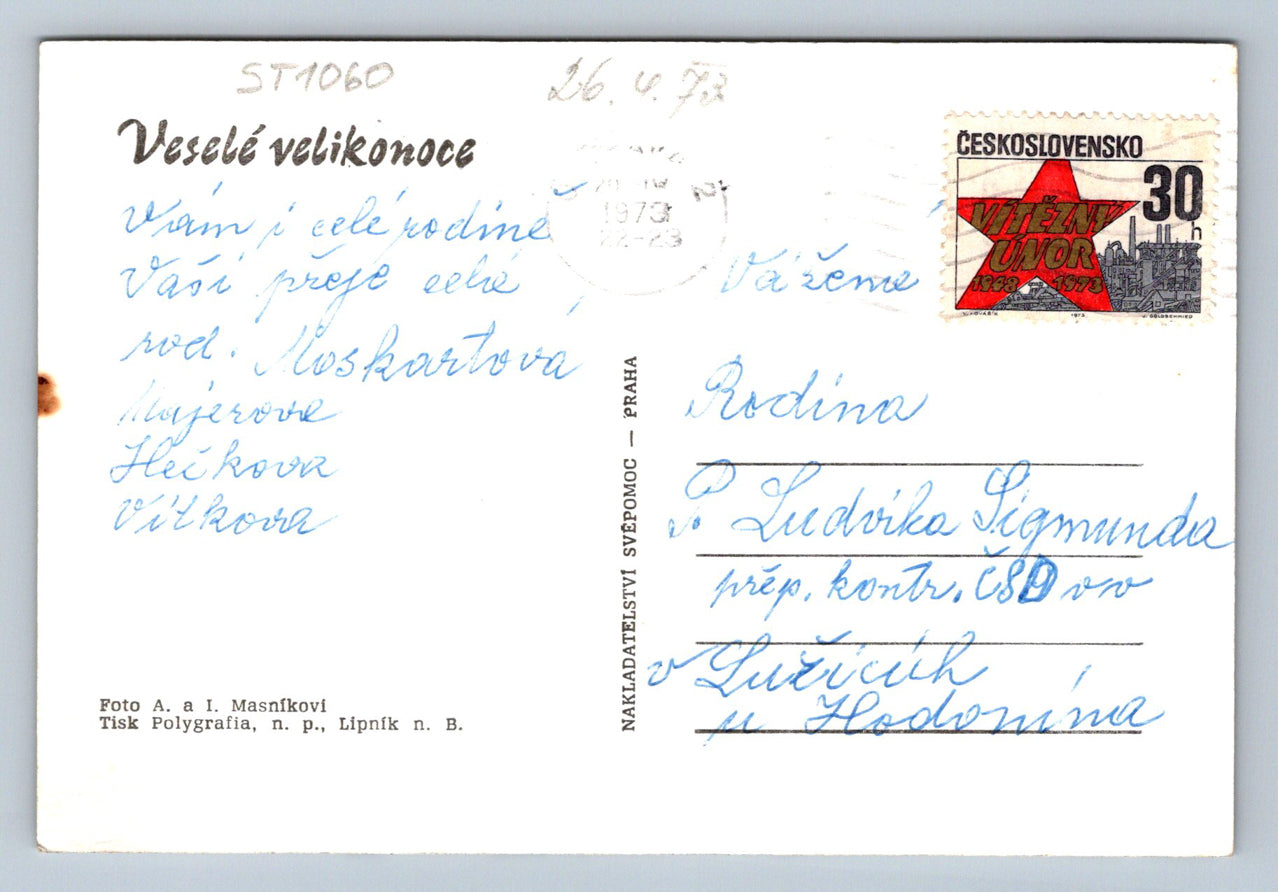 ST1060
26. 4. 73
Veselé velikonoce
Vám i celé rodině
Vaší přeje celá
rod. Moskartova
Majerova
Hečkova
Vítkova
Foto A. a I. Masníkovi
Tisk Polygrafia, n. p., Lipník n. B.
NAKLADATELSTVÍ SVĚPOMOC — PRAHA
1973
22-23
ČESKOSLOVENSKO
30
h
VÍTĚZNÝ
ÚNOR
1948 1973
1973
J. GOLDSCHMIED
Vážená
Rodina
P. Ludvíka Sigmunda
přep. kontr. ČSD vv
v Lužicích
u Hodonína